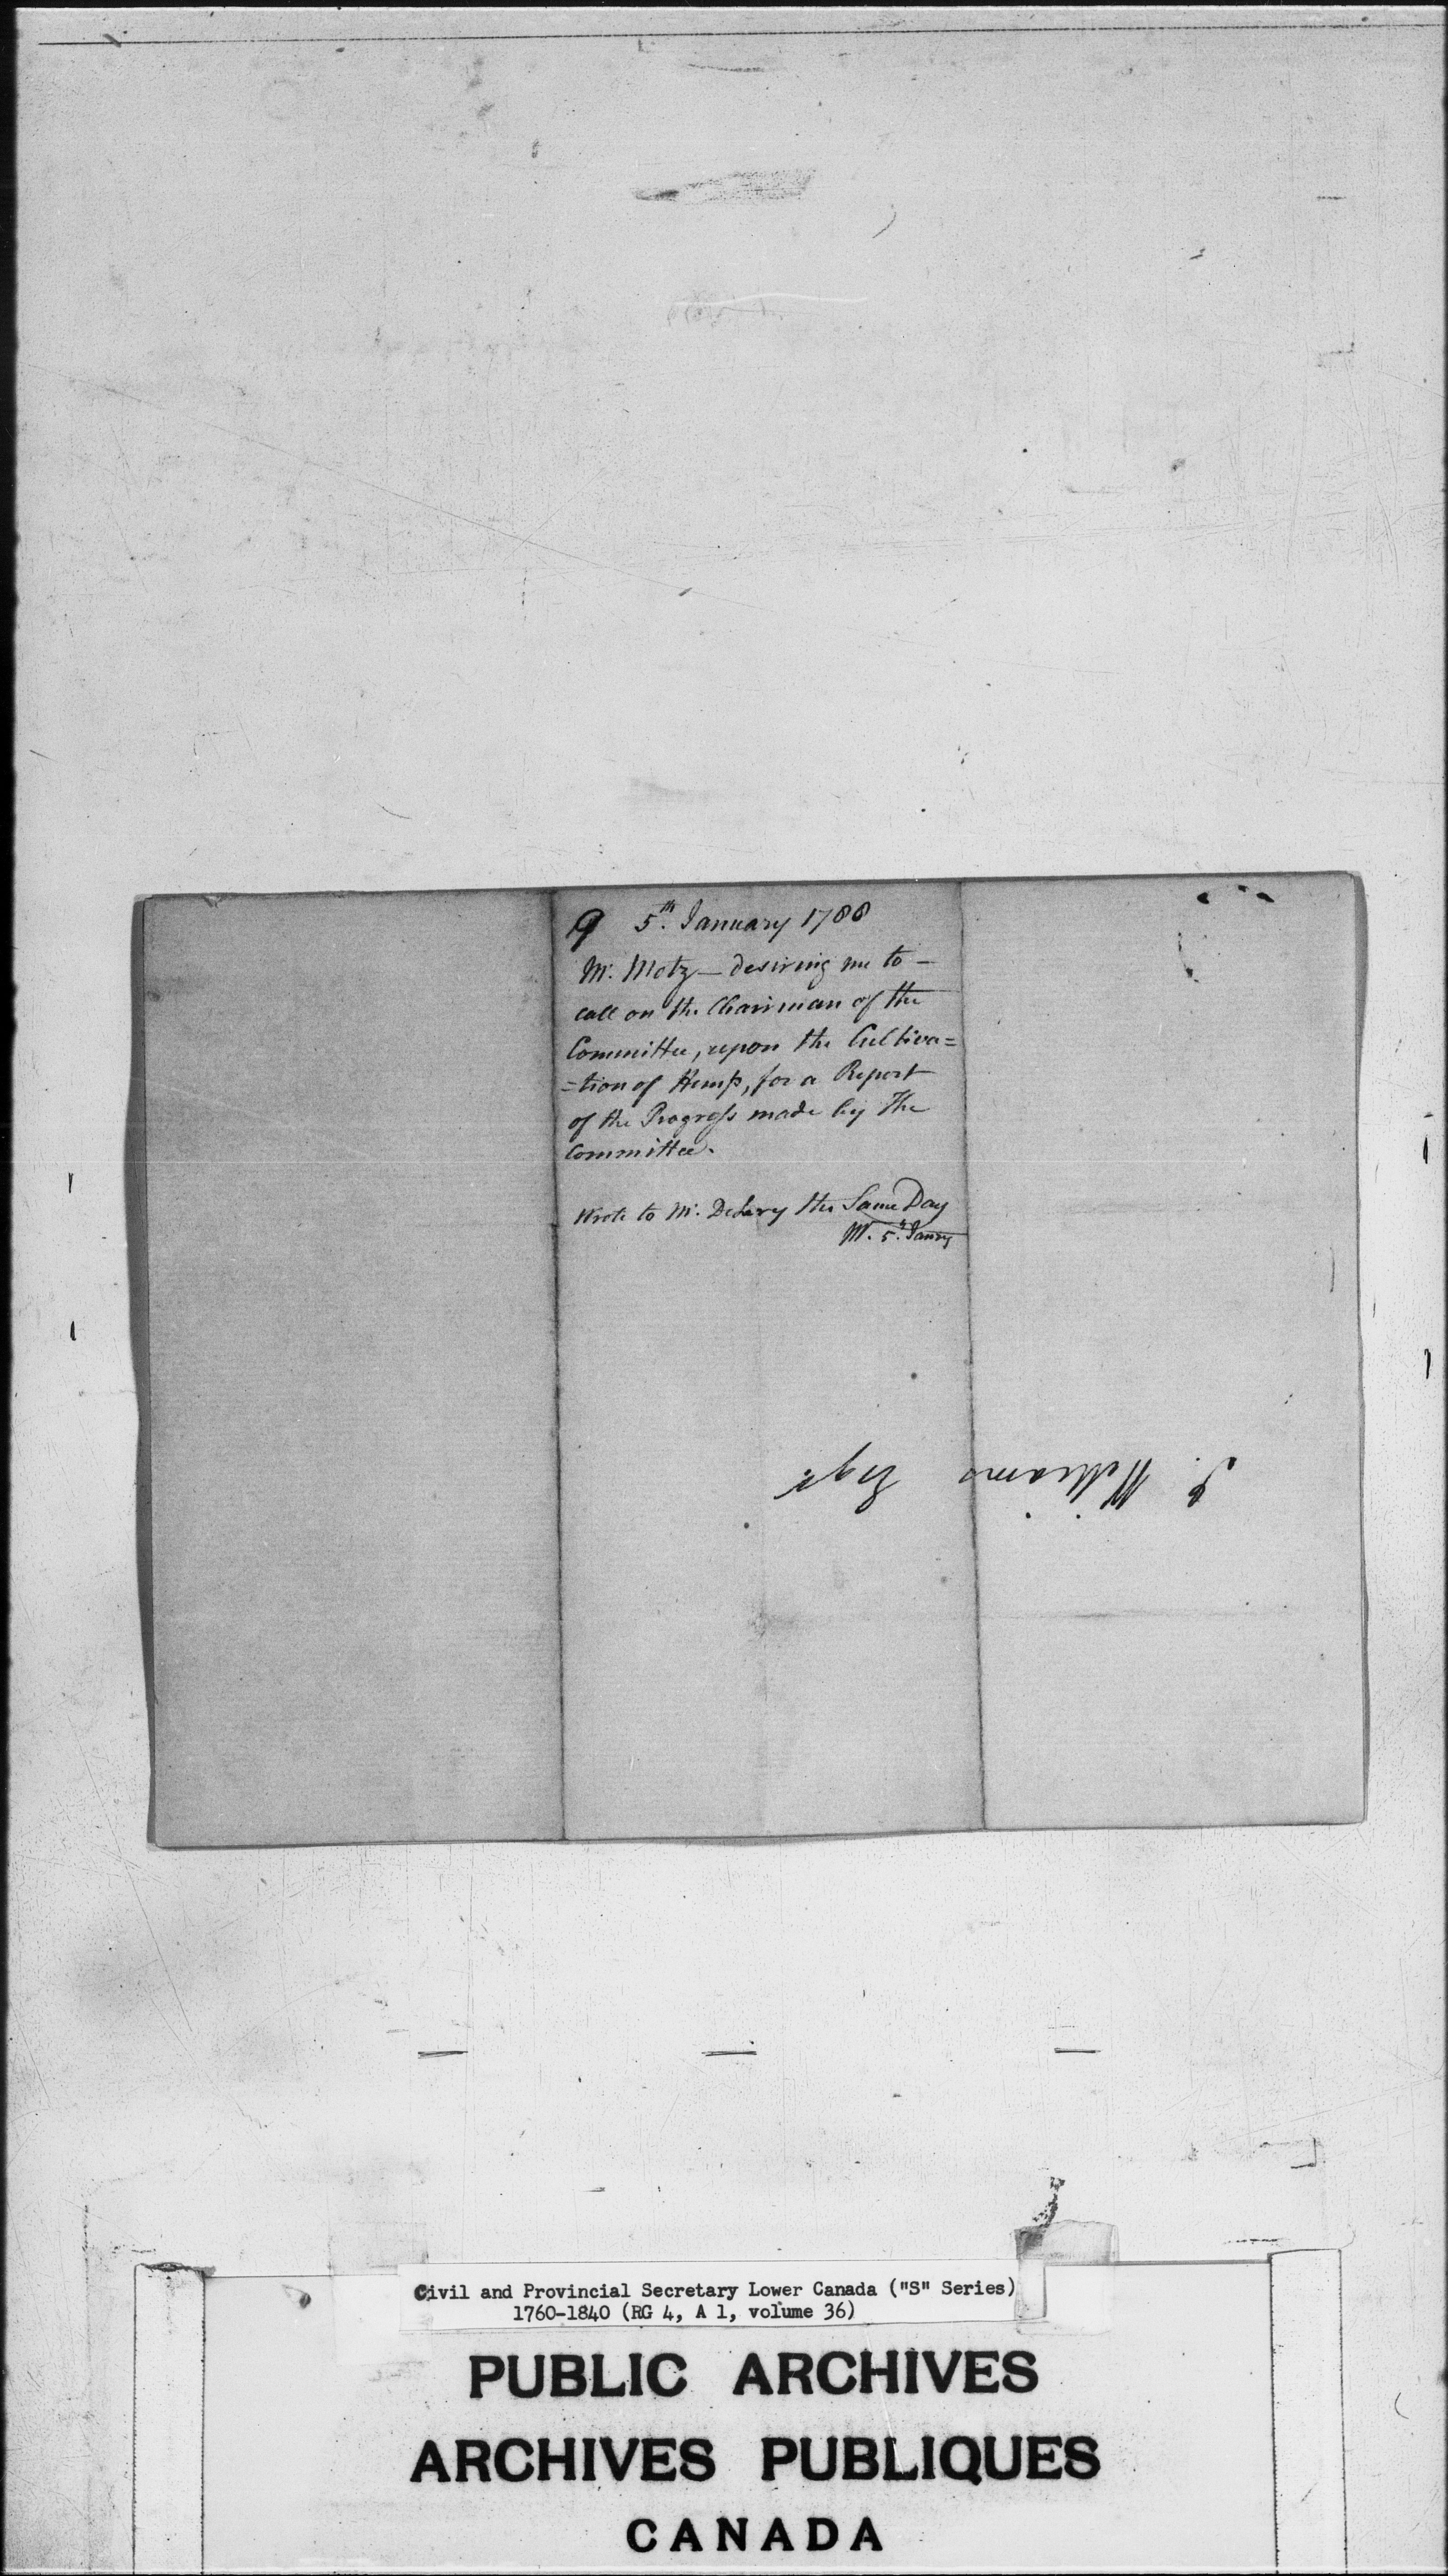 9 5th. January 1788
Mr. Motz — desiring me to —
call on the Chairman of the
Committee, upon the Cultiva=
=tion of Hemp, for a Report
of the Progress made by The
Committee.
Wrote to Mr. DeLery the Same Day
W. 5th. Janry
J. Williams Esqr.
Civil and Provincial Secretary Lower Canada ("S" Series)
1760-1840 (RG 4, A 1, volume 36)
PUBLIC ARCHIVES
ARCHIVES PUBLIQUES
CANADA